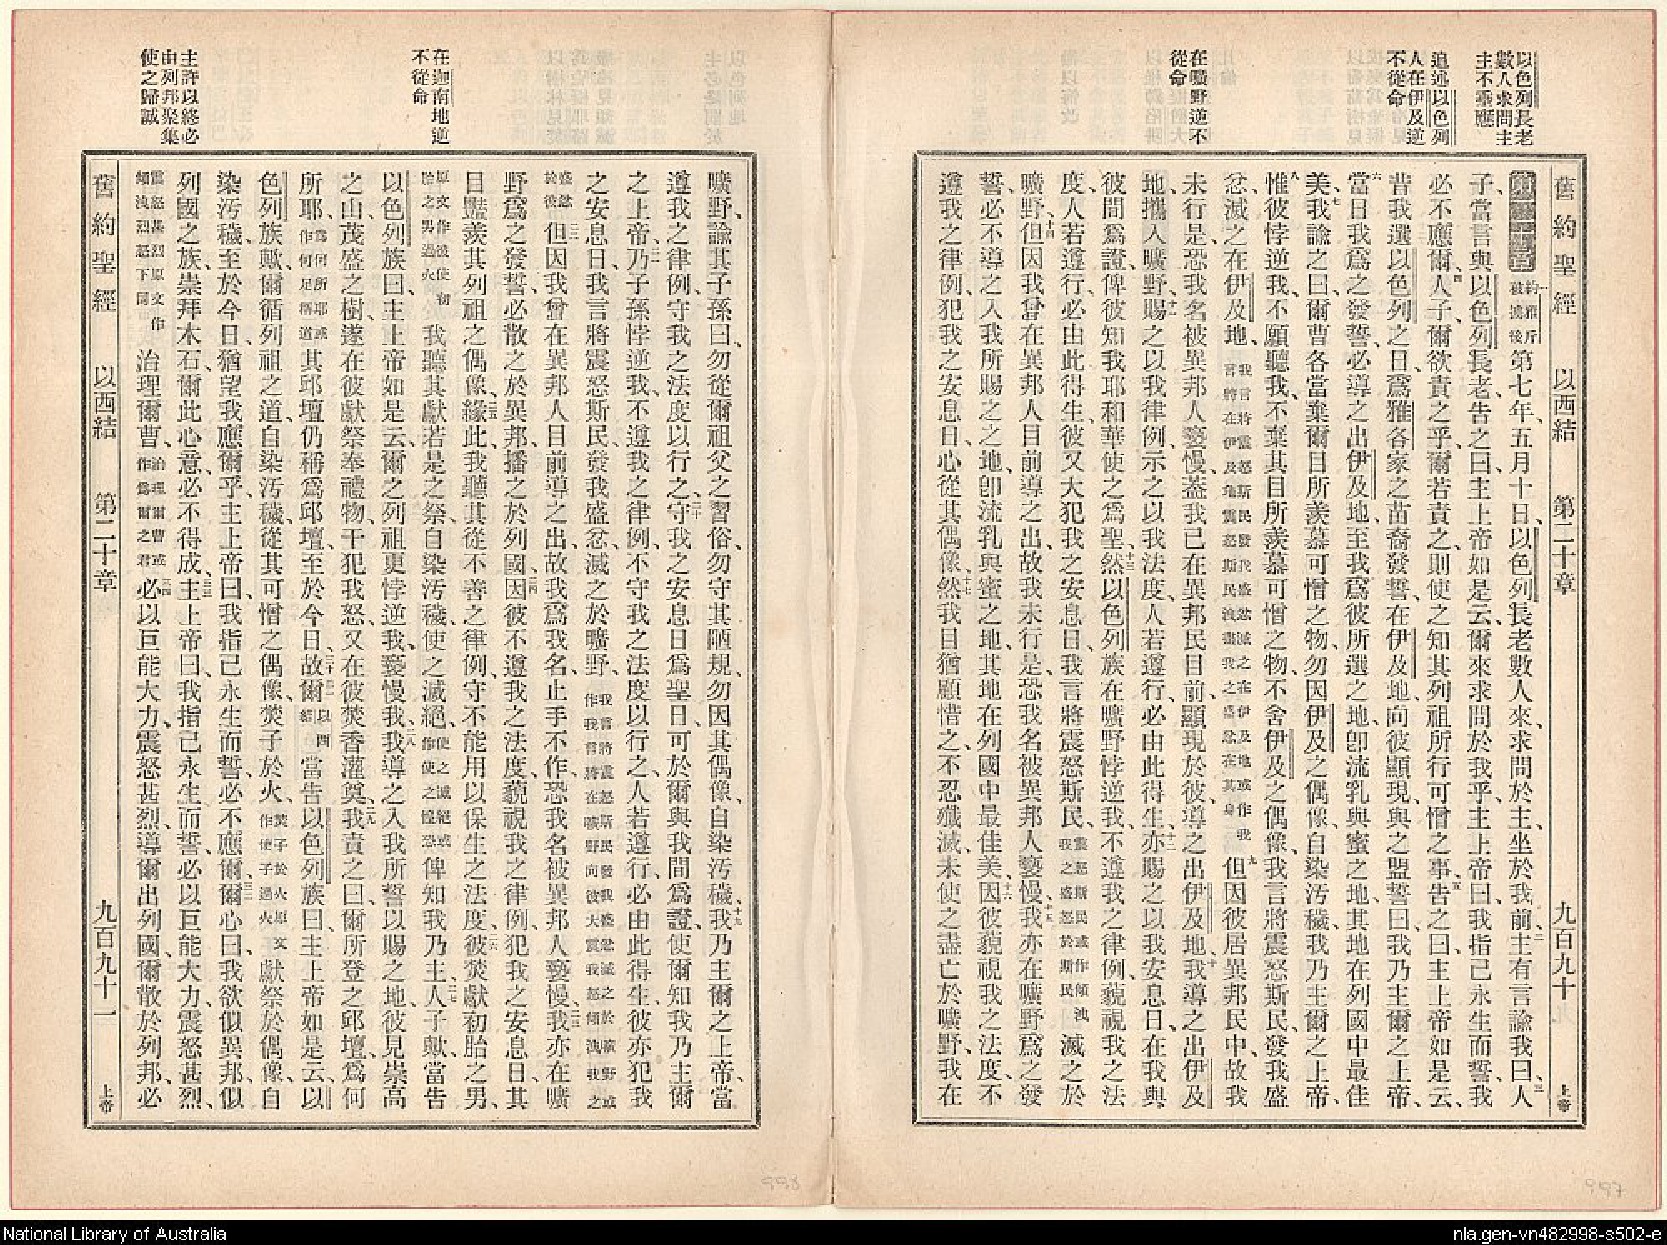 以色列長老
數人求問主
主不垂應
追述以色列
人在伊及逆
不從命
在曠野逆不
從命
舊約聖經 以西結 第二十章 九百九十 上帝
第二十章 第七年、五月十日、以色列長老數人來、求問於主、坐於我前、二主有言諭我曰、三人
子、當言與以色列長老、告之曰、主上帝如是云、爾來求問於我乎、主上帝曰、我指己永生而誓、我
必不應爾、四人子、爾欲責之乎、爾若責之、則使之知其列祖所行可憎之事、五告之曰、主上帝如是云、
昔我選以色列之日、爲雅各家之苗裔發誓、在伊及地向彼顯現、與之盟誓曰、我乃主爾之上帝、
六當日我爲之發誓、必導之出伊及地、至我爲彼所選之地、卽流乳與蜜之地、其地在列國中最佳
美、七我諭之曰、爾曹各當棄爾目所羨慕可憎之物、勿因伊及之偶像自染汚穢、我乃主爾之上帝、
八惟彼悖逆我、不願聽我、不棄其目所羨慕可憎之物、不舍伊及之偶像、我言將震怒斯民、發我盛
忿、滅之在伊及地、我言將震怒斯民發我盛忿滅之在伊及地或作我言將在伊及地震怒斯民洩盡我之盛忿在其身九但因彼居異邦民中、故我
未行是、恐我名被異邦人褻慢、蓋我已在異邦民目前、顯現於彼、導之出伊及地、十我導之出伊及
地、攜入曠野、十一賜之以我律例、示之以我法度、人若遵行、必由此得生、十二亦賜之以我安息日、在我與
彼間爲證、俾彼知我耶和華使之爲聖、十三然以色列族在曠野悖逆我、不遵我之律例、藐視我之法
度、人若遵行、必由此得生、彼又大犯我之安息日、我言將震怒斯民、震怒斯民或作傾洩我之盛怒於斯民滅之於
曠野、十四但因我曾在異邦人目前導之出、故我未行是、恐我名被異邦人褻慢、十五我亦在曠野爲之發
誓、必不導之入我所賜之之地、卽流乳與蜜之地、其地在列國中最佳美、十六因彼藐視我之法度、不
遵我之律例、犯我之安息日、心從其偶像、十七然我目猶顧惜之、不忍殲滅、未使之盡亡於曠野、我在
在迦南地逆
不從命
主許以終必
由列邦聚集
使之歸誠
曠野、諭其子孫曰、勿從爾祖父之習俗、勿守其陋規、勿因其偶像、自染汚穢、十九我乃主爾之上帝、當
遵我之律例、守我之法度以行之、二十守我之安息日爲聖日、可於爾與我間爲證、使爾知我乃主爾
之上帝、二一乃子孫悖逆我、不遵我之律例、不守我之法度以行之、人若遵行、必由此得生、彼亦犯我
之安息日、我言將震怒斯民、發我盛忿、滅之於曠野、我言將震怒斯民發我盛忿滅之於曠野或作我言將在曠野向彼大震我怒傾洩我之
盛忿於彼二二但因我曾在異邦人目前、導之出、故我爲我名止手不作、恐我名被異邦人褻慢、二三我亦在曠
野爲之發誓、必散之於異邦、播之於列國、二四因彼不遵我之法度、藐視我之律例、犯我之安息日、其
目豔羨其列祖之偶像、二五緣此、我聽其從不善之律例、守不能用以保生之法度、二六彼焚獻初胎之男、
原文作彼使初胎之男過火 我聽其獻若是之祭、自染汚穢、使之滅絕、使之滅絕或作使之惶恐俾知我乃主、二七人子歟、當告
以色列族曰、主上帝如是云、爾之列祖更悖逆我、褻慢我、二八我導之入我所誓以賜之之地、彼見崇高
之山、茂盛之樹、遂在彼獻祭奉禮物、干犯我怒、又在彼焚香灌奠、二九我責之曰、爾所登之邱壇、爲何
所耶、爲何所耶或作何足稱道其邱壇仍稱爲邱壇、至於今日、三十故爾以西結當告以色列族曰、主上帝如是云、以
色列族歟、爾循列祖之道、自染汚穢、從其可憎之偶像、焚子於火、焚子於火原文作使子過火獻祭於偶像、自
染汚穢、至於今日、猶望我應爾乎、主上帝曰、我指己永生而誓、必不應爾、三二爾心曰、我欲似異邦、似
列國之族、崇拜木石、爾此心意、必不得成、三三主上帝曰、我指己永生而誓、必以巨能大力、震怒甚烈、
震怒甚烈原文作傾洩烈怒下同 治理爾曹、治理爾曹或作爲爾之君三四必以巨能大力、震怒甚烈、導爾出列國、爾散於列邦、必
舊約聖經 以西結 第二十章 九百九十一 上帝
998
997
National Library of Australia
nla.gen-vn482998-s502-e